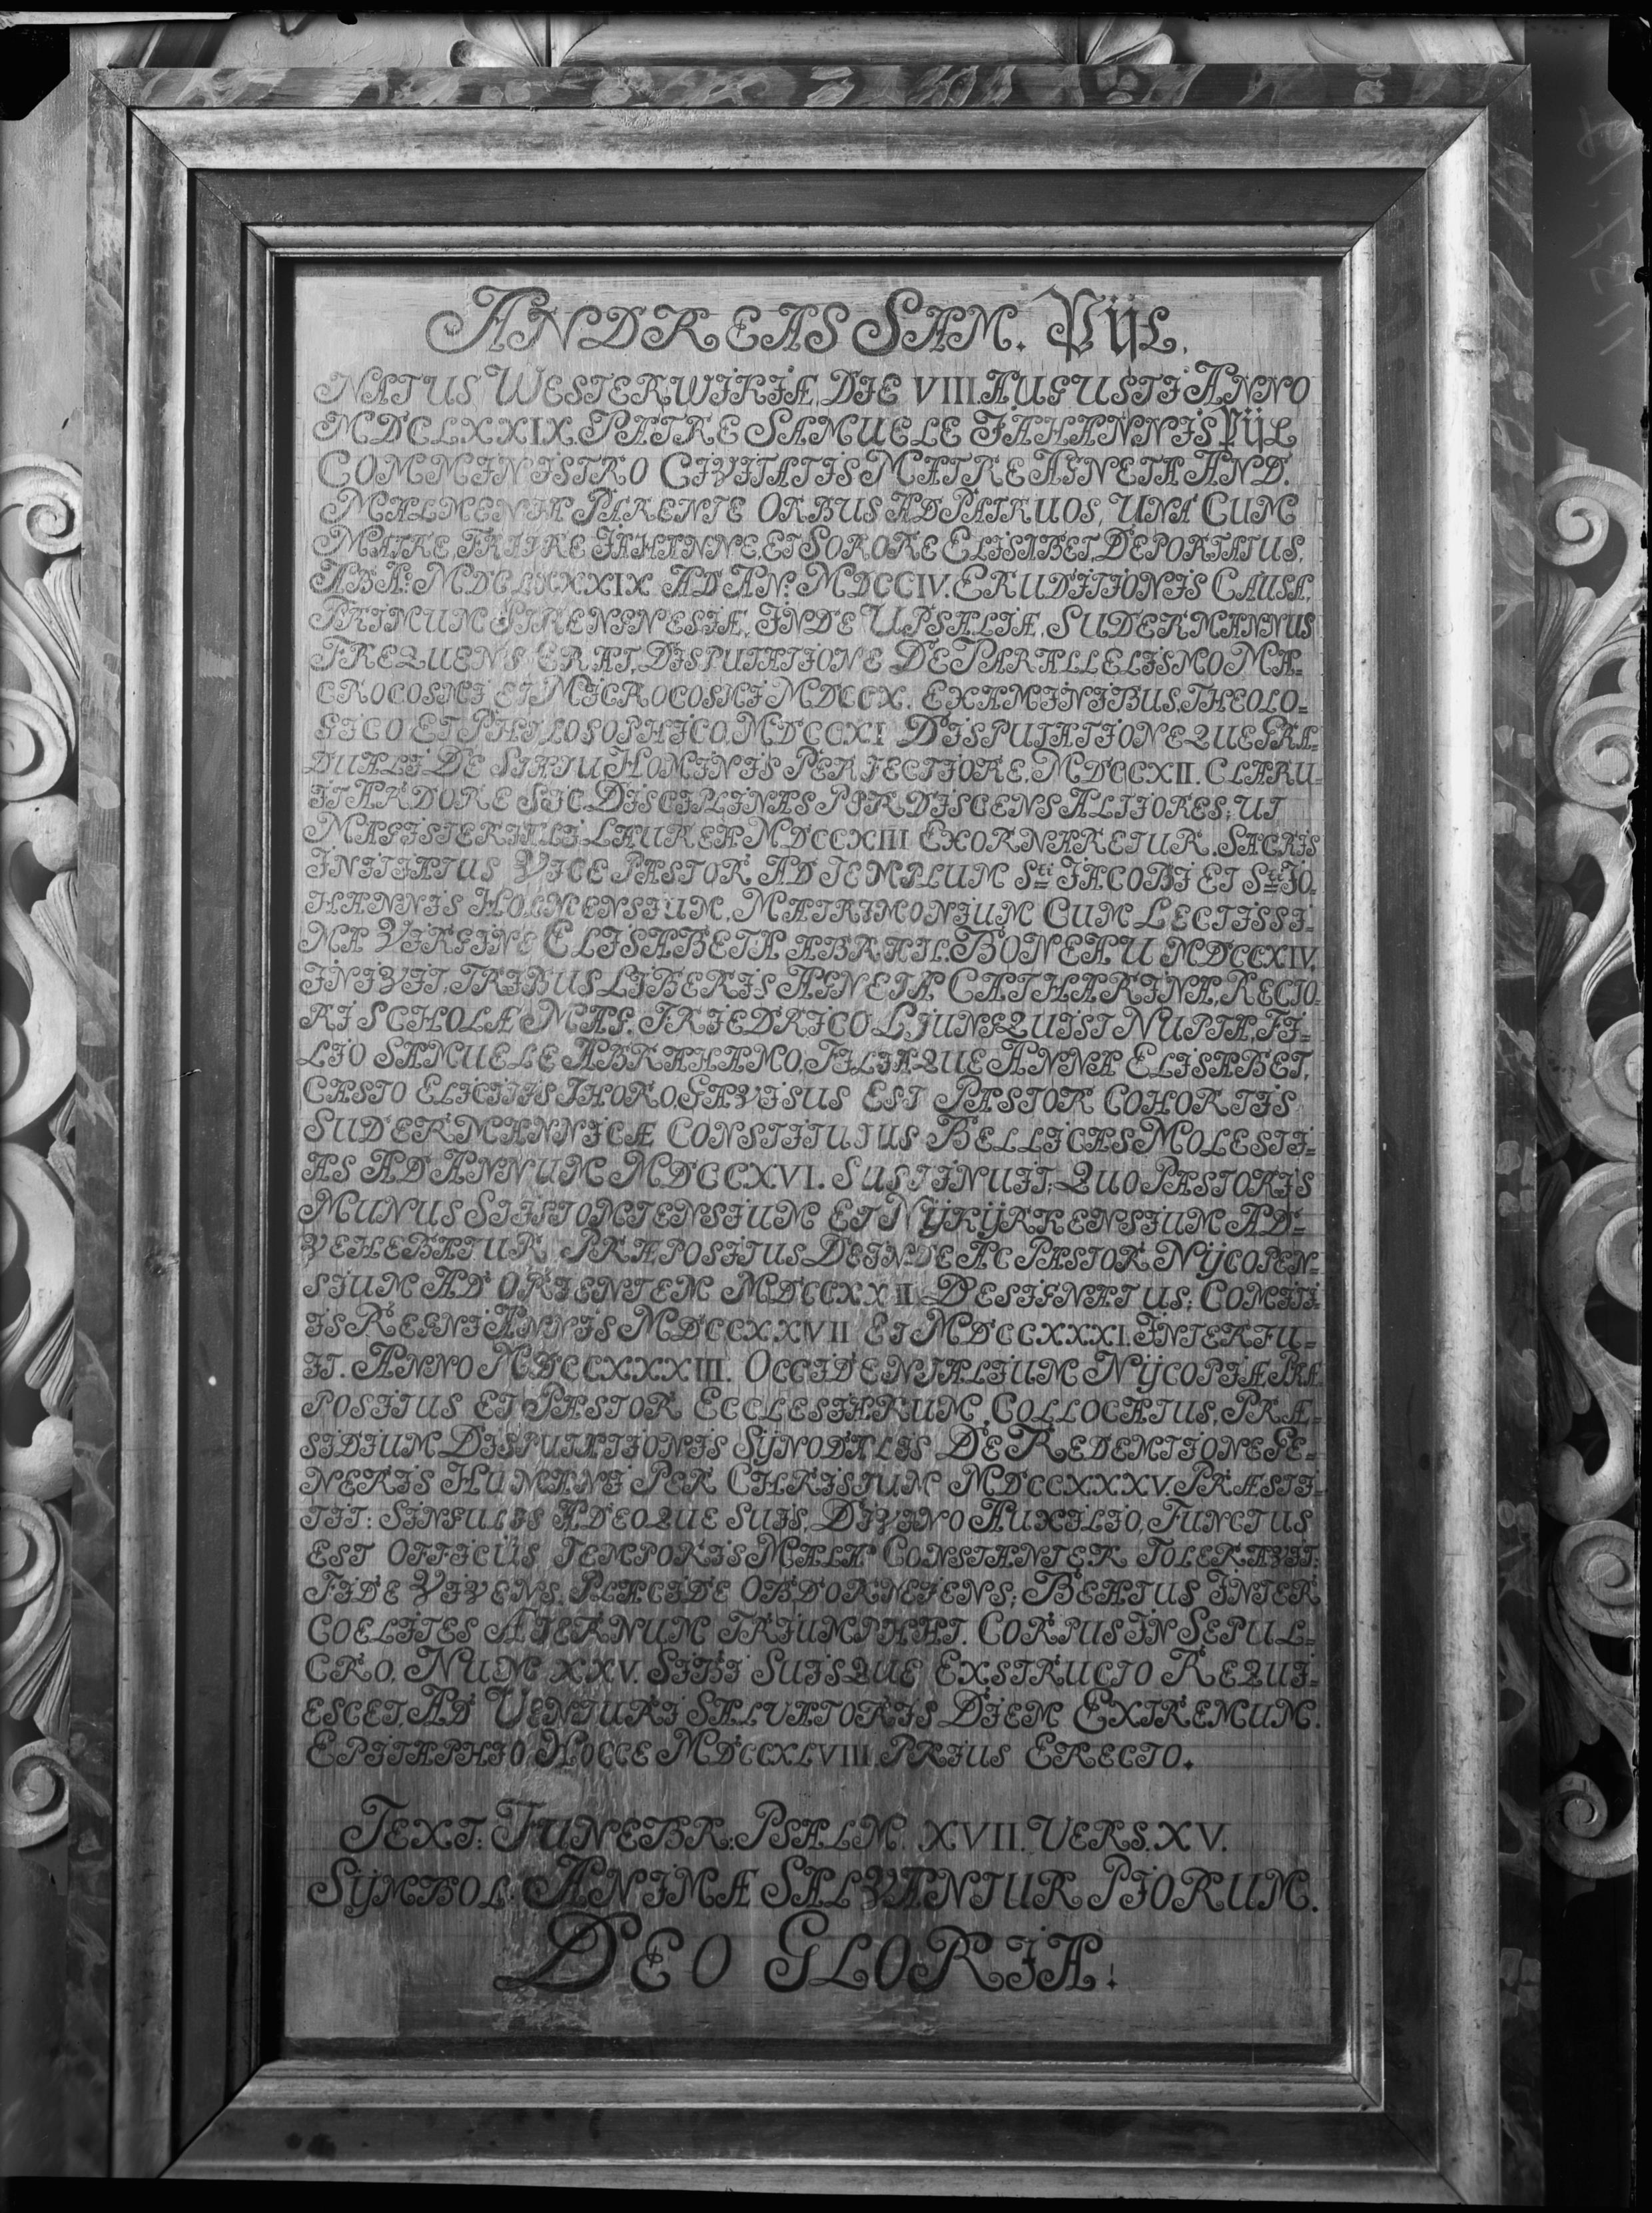 ANDREAS SAM. Pijl.
NATUS WESTERWIKIÆ, DIE VIII. AUGUSTI ANNO
MDCLXXIX. PATRE SAMUELE JAHANNIS Pijl
COMMINISTRO CIVITATIS MATRE AGNETA AND.
MALMENIA PARENTE ORBUS AD PATRUOS, UNA CUM
MATRE, FRATRE JAHANNE, ET SORORE ELISABET, DEPORTATUS,
AB A: MDCLXXXIX AD AN: MDCCIV. ERUDITIONIS CAUSA,
PRIMUM STRENGNESIÆ, INDE UPSALIÆ, SUDERMANNUS
FREQUENS ERAT, DISPUTATIONE DE PARALLELISMO MA=
CROCOSMI ET MICROCOSMI MDCCX. EXAMINIBUS, THEOLO=
GICO ET PHILOSOPHICO, MDCCXI DISPUTATIONEQUE GRA=
DUALI DE STATU HOMINIS PERFECTIORE, MDCCXII. CLARU=
IT ARDORE SIC DISCIPLINAS PERDISCENS ALTIORES; UT
MAGISTERIALI LAUREA MDCCXIII EXORNARETUR. SACRIS
INITIATUS VICE PASTOR AD TEMPLUM Sti JACOBI ET Sti JO=
HANNIS HOLMENSIUM, MATRIMONIUM CUM LECTISSI=
MA VIRGINE ELISABETA ABRAH. BONEAU MDCCXIV.
INIVIT, TRIBUS LIBERIS AGNETA CATHARINA, RECTO=
RI SCHOLÆ MAG. FRIEDRICO LJUNGQUIST NUPTA, FI=
LIO SAMUELE ABRAHAMO, FILIAQUE ANNA ELISABET,
CASTO ELICITIS THORO, GAVISUS EST PASTOR COHORTIS
SUDERMANNICÆ CONSTITUTUS BELLICAS MOLESTI=
AS AD ANNUM MDCCXVI. SUSTINUIT; QUO PASTORIS
MUNUS SITISTOMTENSIUM ET NijKijRKENSIUM AD=
VEHEBATUR PRÆPOSITUS DEINDE AC PASTOR NijCOPEN=
SIUM AD ORIENTEM MDCCXXII DESIGNATUS; COMITI=
IS REGNI ANNIS MDCCXXVII ET MDCCXXXI. INTERFU=
IT. ANNO MDCCXXXIII. OCCIDENTALIUM NijCOPIÆ PRÆ=
POSITUS ET PASTOR ECCLESIARUM, COLLOCATUS, PRÆ=
SIDIUM DISPUTATIONIS SijNODALIS DE REDEMTIONE GE=
NERIS HUMANI PER CHRISTUM MDCCXXXV. PRÆSTI=
TIT: SINGULIS ADEOQUE SUIS, DIVINO AUXILIO, FUNCTUS
EST OFFICIIS TEMPORIS MALA CONSTANTER TOLERAVIT:
FIDE VIVENS, PLACIDE OBDORMIENS; BEATUS INTER
COELITES ÆTERNUM TRIUMPHAT. CORPUS IN SEPUL=
CRO, NUM XXV. SIBI SUISQUE EXSTRUCTO REQUI=
ESCET, AD VENTURI SALVATORIS DIEM EXTREMUM.
EPITAPHIO HOCCE MDCCXLVIII. PRIUS ERECTO.
TEXT: FUNEBR: PSALM. XVII. VERS. XV.
SijMBOL: ANIMÆ SALVANTUR PIORUM.
DEO GLORIA!